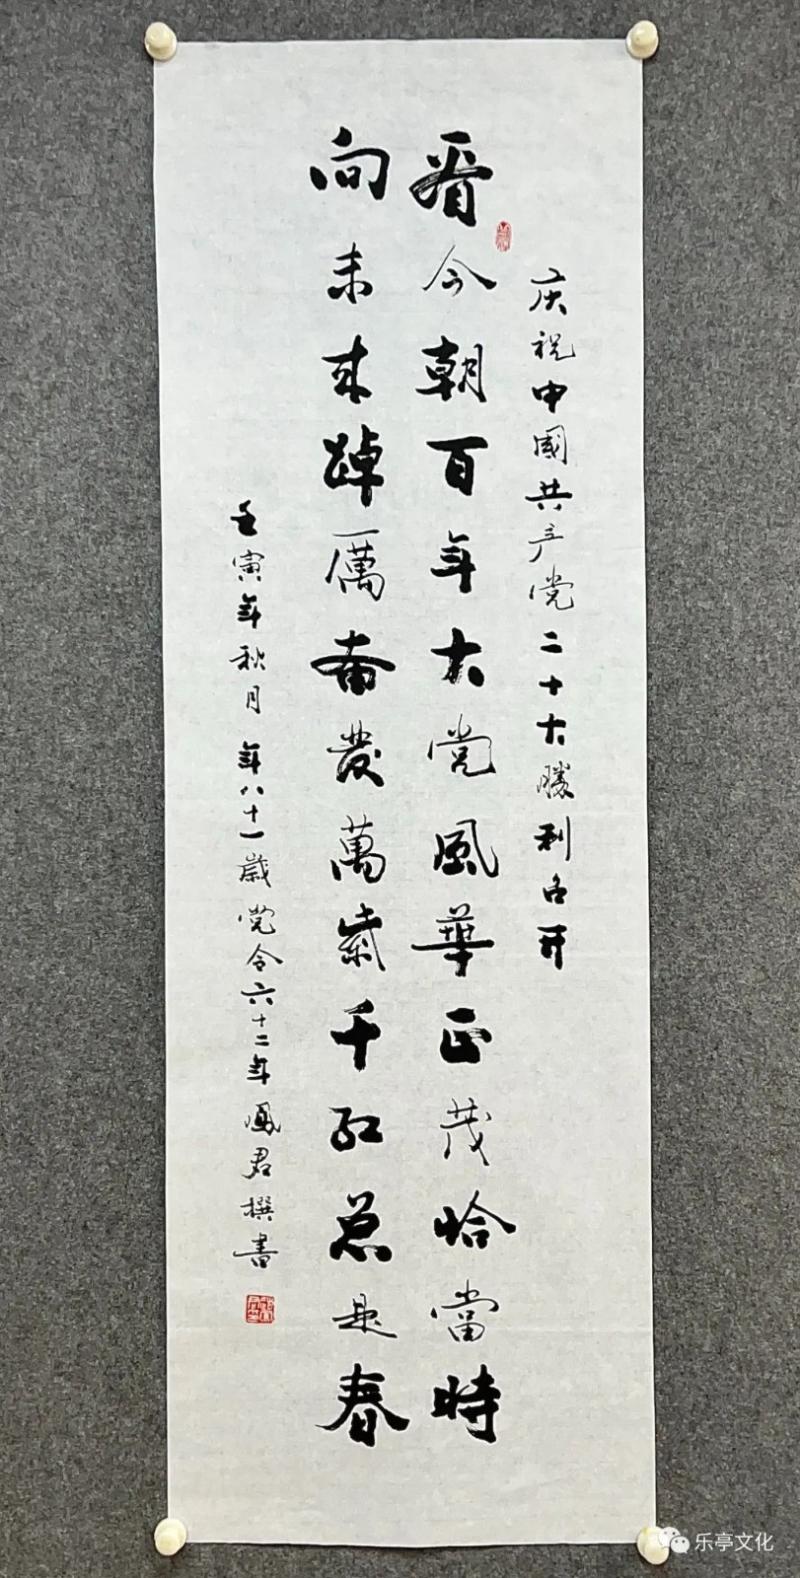 庆祝中國共产党二十大勝利召开
看今朝百年大党風華正茂恰當時
向未来踔厲奋發萬紫千红总是春
壬寅年秋月 年八十一歲党令六十二年鳳君撰書
乐亭文化